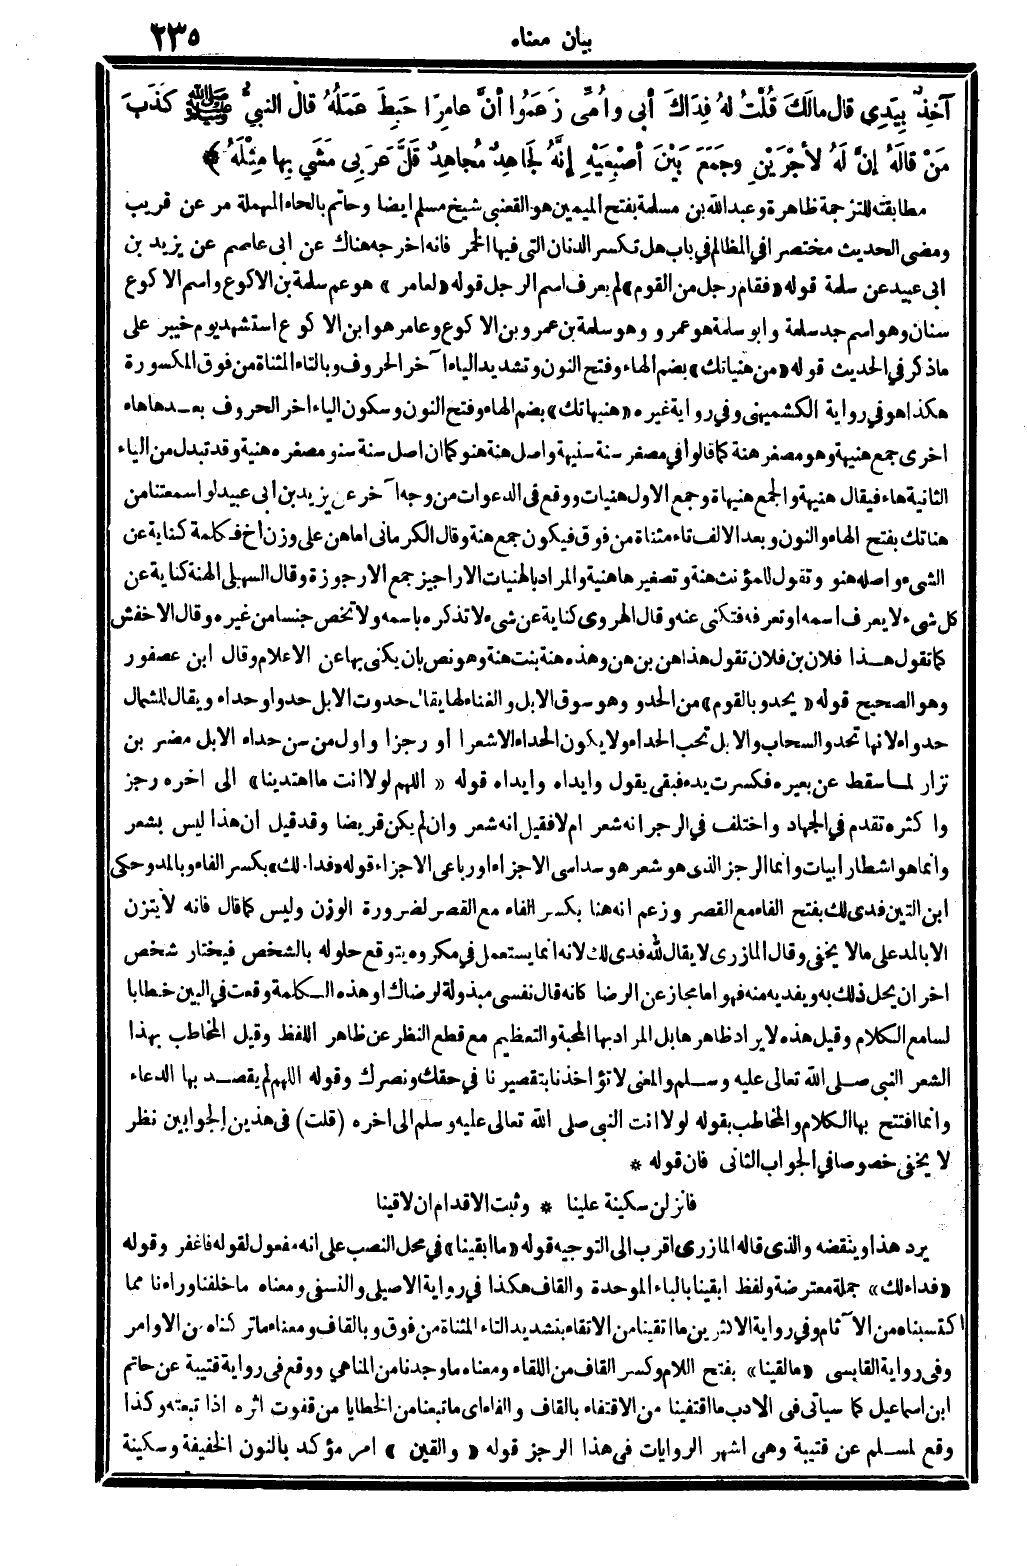 بيان معناه ٢٣٥
آخِذٌ بِيَدِي قال مالَكَ قُلْتُ لهُ فِدَاكَ أبى وأُمِّى زَعَمُوا أنَّ عامِرًا حَبِطَ عَمَلُهُ قال النبيُّ ﷺ كَذَبَ
مَنْ قالَهُ إنَّ لَهُ لَأَجْرَيْنِ وجَمَعَ بَيْنَ أصْبُعَيْهِ إنَّهُ لَجَاهِدٌ مُجاهِدٌ قَلَّ عَرَبِى مَشَي بِها مِثْلَهُ ﴾
مطابقته للترجمة ظاهرة وعبدالله بن مسلمة بفتح الميمين هو القعنبى شيخ مسلم ايضا وحاتم بالحاء المهملة مر عن قريب
ومضى الحديث مختصرا في المظالم في باب هل تكسر الدنان التى فيها الخمر فانه اخرجه هناك عن ابى عاصم عن يزيد بن
ابى عبيد عن سلمة قوله «فقام رجل من القوم» لم يعرف اسم الرجل قوله «لعامر» هو عم سلمة بن الاكوع واسم الاكوع
سنان وهو اسم جد سلمة وابو سلمة هو عمرو وهو سلمة بن عمرو بن الاكوع وعامر هو ابن الاكوع استشهد يوم خيبر على
ماذكر في الحديث قوله «من هنياتك» بضم الهاء وفتح النون وتشديد الياء آخر الحروف وبالتاء المثناة من فوق المكسورة
هكذا هو في رواية الكشميهنى وفي رواية غيره «هنيهاتك» بضم الهاء وفتح النون وسكون الياء اخر الحروف بعـدها هاء
اخرى جمع هنيهة وهو مصغر هنة كما قالوا في مصغر سنة سنيهة واصل هنة هنو كما ان اصل سنة سنو ومصغره هنية وقد تبدل من الياء
الثانية هاء فيقال هنيهة والجمع هنيهاة وجمع الاول هنيات ووقع فى الدعوات من وجه آخر عن يزيد بن ابى عبيد لو اسمعتنا من
هناتك بفتح الهاء والنون وبعد الالف تاء مثناة من فوق فيكون جمع هنة وقال الكرمانى اما هن على وزن أخ فـكلمة كناية عن
الشيء واصله هنو وتقول للمؤنث هنة وتصغيرها هنية والمراد بالهنيات الاراجيز جمع الارجوزة وقال السهيلى الهنة كناية عن
كل شيء لا يعرف اسمه او تعرفه فتكنى عنه وقال الهروى كناية عن شيء لا تذكره باسمه ولا تخص جنسا من غيره وقال الاخفش
كما تقول هـذا فلان بن فلان تقول هذا هن بن هن وهذه هنة بنت هنة وهو نص بان يكنى بها عن الاعلام وقال ابن عصفور
وهو الصحيح قوله «يحدو بالقوم» من الحدو وهو سوق الابل والغناء لها يقال حدوت الابل حدوا وحداء ويقال للشمال
حدواء لانها تحدو السحاب والابل تحب الحداء ولا يكون الحداء الا شعرا او رجزا واول من سن حداء الابل مضر بن
نزار لما سقط عن بعيره فكسرت يده فبقى يقول وايداه وايداه قوله «اللهم لولا انت ما اهتدينا» الى اخره رجز
واكثره تقدم في الجهاد واختلف في الرجز انه شعر ام لا فقيل انه شعر وان لم يكن قريضا وقد قيل ان هذا ليس بشعر
وانما هو اشطار أبيات وانما الرجز الذى هو شعر هو سداسى الاجزاء او رباعى الاجزاء قوله «فداء لك» بكسر الفاء وبالمد وحكى
ابن التين فدى لك بفتح الفاء مع القصر وزعم انه هنا بكسر الفاء مع القصر لضرورة الوزن وليس كما قال فانه لا يتزن
الا بالمد على ما لا يخفى وقال المازرى لا يقال لله فدى لك لانه انما يستعمل في مكروه يتوقع حلوله بالشخص فيختار شخص
اخر ان يحل ذلك به ويفديه منه فهو اما مجاز عن الرضا كانه قال نفسى مبذولة لرضاك او هذه الـكلمة وقعت في البين خطابا
لسامع الكلام وقيل هذه لا يراد ظاهرها بل المراد بها المحبة والتعظيم مع قطع النظر عن ظاهر اللفظ وقيل المخاطب بهذا
الشعر النبى صـلى الله تعالى عليه وسـلم والمعنى لا تؤاخذنا بتقصيرنا في حقك ونصرك وقوله اللهم لم يقصـد بها الدعاء
وانما افتتح بها الكلام والمخاطب بقوله لولا انت النبى صلى الله تعالى عليه وسلم الى اخره (قلت) فى هذين الجوابين نظر
لا يخفى خصوصا في الجواب الثانى فان قوله *
فانزلن سكينة علينا * وثبت الاقدام ان لاقينا
يرد هذا وينقضه والذى قاله المازرى اقرب الى التوجيه قوله «ما ابقينا» في محل النصب على انه مفعول لقوله فاغفر وقوله
«فداء لك» جملة معترضة ولفظ ابقينا بالباء الموحدة والقاف هكذا في رواية الاصيلى والنسفى ومعناه ما خلفنا وراءنا مما
اكتسبناه من الآثام وفي رواية الاكثرين ما اتقينا من الاتقاء بتشديد التاء المثناة من فوق وبالقاف ومعناه ما تركناه من الاوامر
وفى رواية القابسى «ما لقينا» بفتح اللام وكسر القاف من اللقاء ومعناه ما وجدنا من المناهي ووقع في رواية قتيبة عن حاتم
ابن اسماعيل كما سيأتى فى الادب ما اقتفينا من الاقتفاء بالقاف والفاء اى ما تبعنا من الخطايا من قفوت اثره اذا تبعته وكذا
وقع لمسـلم عن قتيبة وهى اشهر الروايات فى هذا الرجز قوله «والقين» امر مؤكد بالنون الخفيفة وسكينة